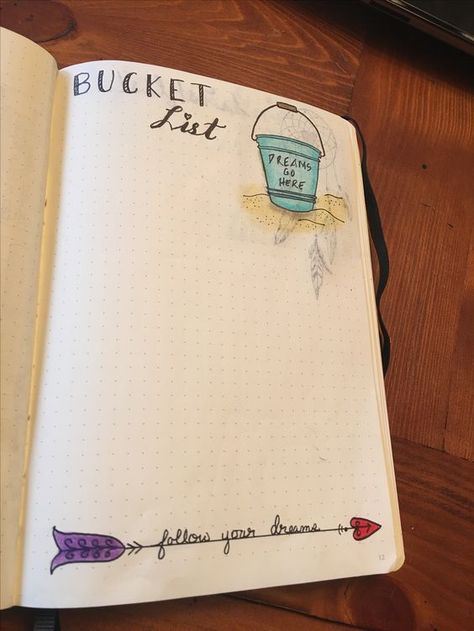 BUCKET
List
DREAMS
GO
HERE
follow your dreams
12